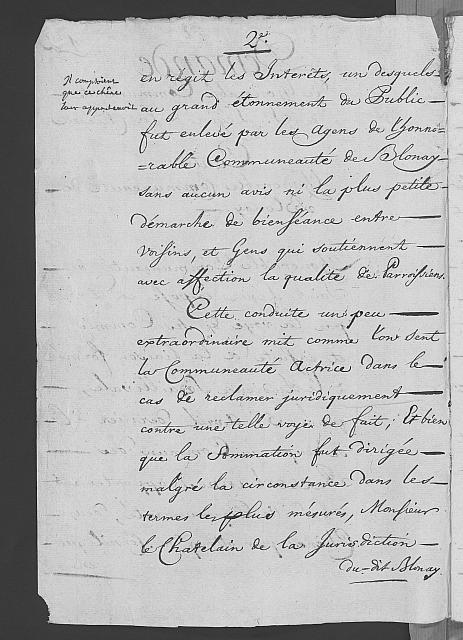 2e.
Il comptoient
que ce chêne
leur appartenoit
en régit les Interêts, un desquels
au grand étonnement du Public —
fut enlevé par les Agens de l'honno=
=rable Communeauté de Blonay
sans aucun avis ni la plus petite
démarche de bienséance entre —
Voisins, et Gens qui soutiennent —
avec affection la qualité de Parroissiens.
Cette conduite un peu —
extraordinaire mit comme l'on sent
la Communeauté Actrice dans le
cas de reclamer juridiquement —
contre une telle voye de fait; Et bien
que la Sommation fut dirigée —
malgré la circonstance dans les
termes les plus mésurés, Monsieur
le Chatelain de la Jurisdiction —
du-dit Blonay